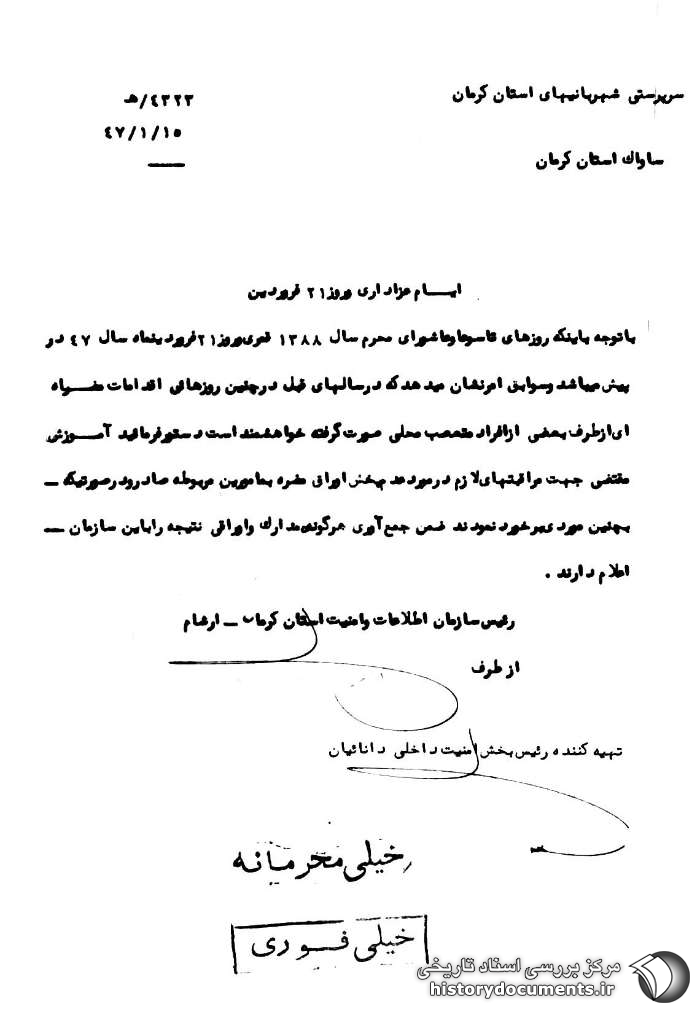 سرپرستی شهربانیهای استان کرمان
۴۳۲۳/هـ
۴۷/۱/۱۵
ساواك استان کرمان
ایـــام عزاداری وروز ۲۱ فروردین
باتوجه باینکه روزهای تاسوعا وعاشورای محرم سال ۱۳۸۸ قمری وروز ۲۱ فروردینماه سال ۴۷ در
پیش میباشد وسوابق امرنشان میدهد که درسالهای قبل درچنین روزهائی اقدامات مضـره
ای ازطرف بعضی ازافراد متعصب محلی صورت گرفته خواهشمند است دستورفرمائید آمـوزش
مقتضی جهت مراقبتهای لازم درمورد عدم پخش اوراق مضره بمامورین مربوطه صادر ودرصورتیکه ــ
بچنین موردی برخورد نمودند ضمن جمع آوری هرگونه مدارك واوراقی نتیجه راباین سازمان ــ
اعلام دارند .
رئیس سازمان اطلاعات وامنیت استان کرمان ــ ارشام
از طرف
تهیه کننده رئیس بخش امنیت داخلی دانائیان
خیلی محرمانه
خیلی فــوری
مرکز بررسی اسناد تاریخی
historydocuments.ir